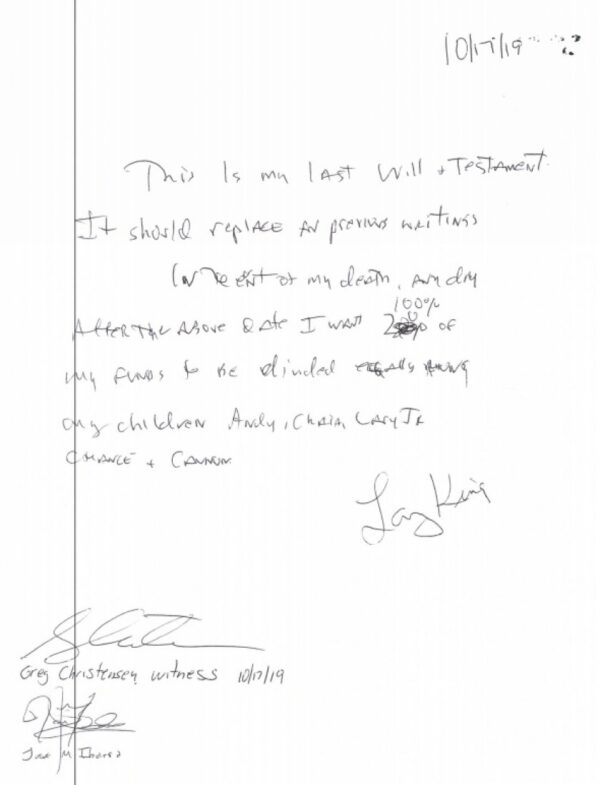 10/17/19
This Is my LAST Will + TESTAMENT.
It should replace previous writings
In of my death, any day
AFTER THE ABOVE DATE I WANT 100% OF
my FUNDS to BE divided
my children Andy, Chaia, LARRY JR
CHANCE + CANNON.
Larry King
Greg Christensen witness 10/17/19
M